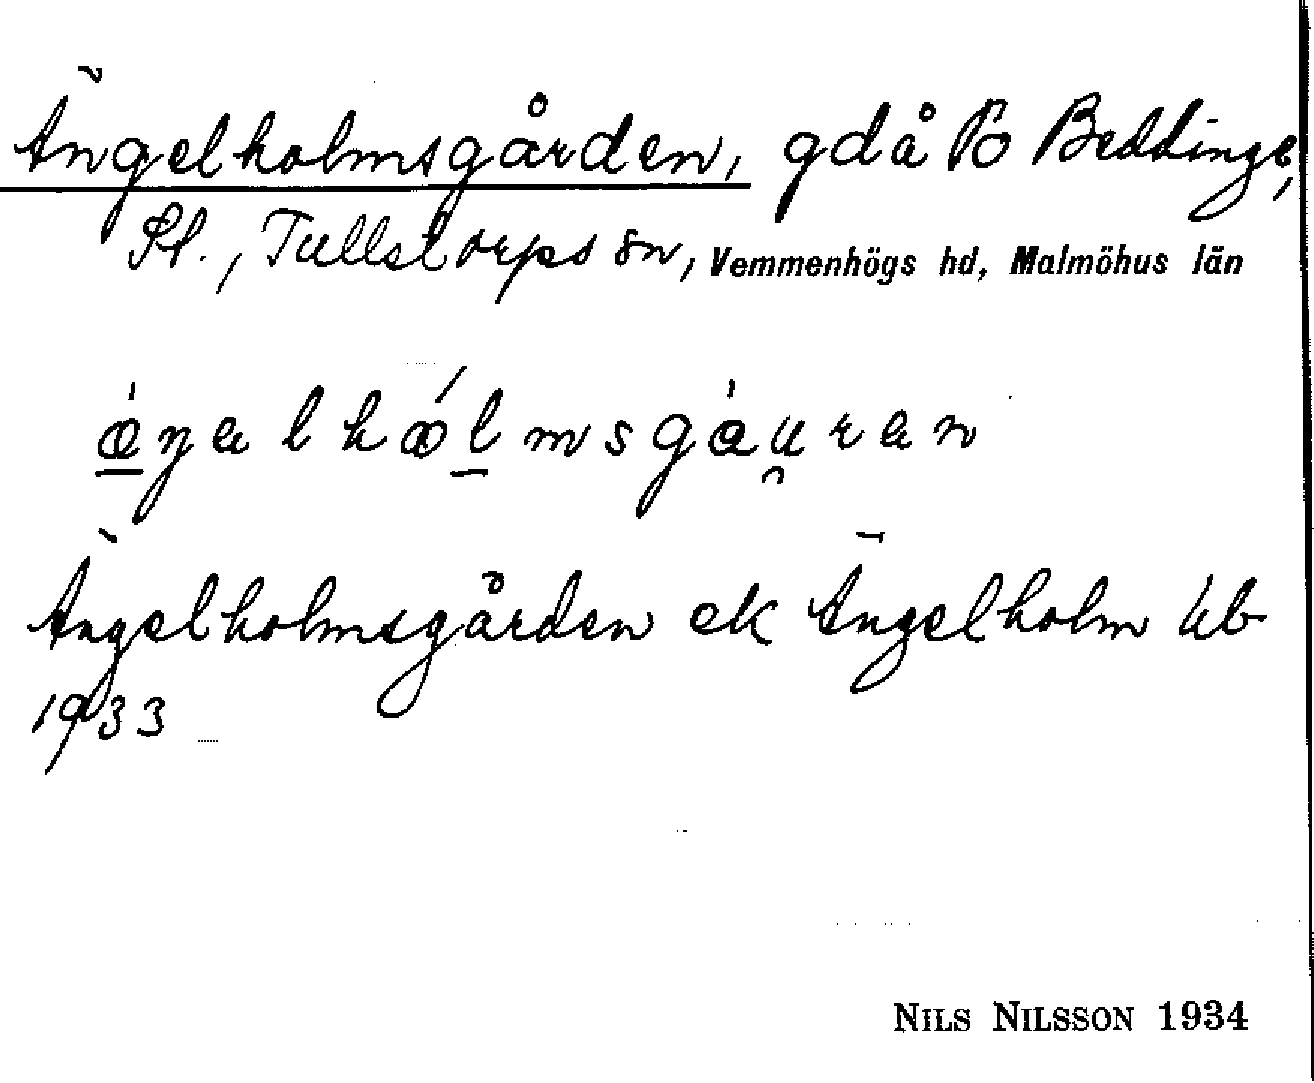 Ängelholmsgården, gd å 13 Beddinge,
St., Tullstorps sn, Vemmenhögs hd, Malmöhus län
Ängelholmsgården ek Ängelholm Ub
1933
NILS NILSSON 1934